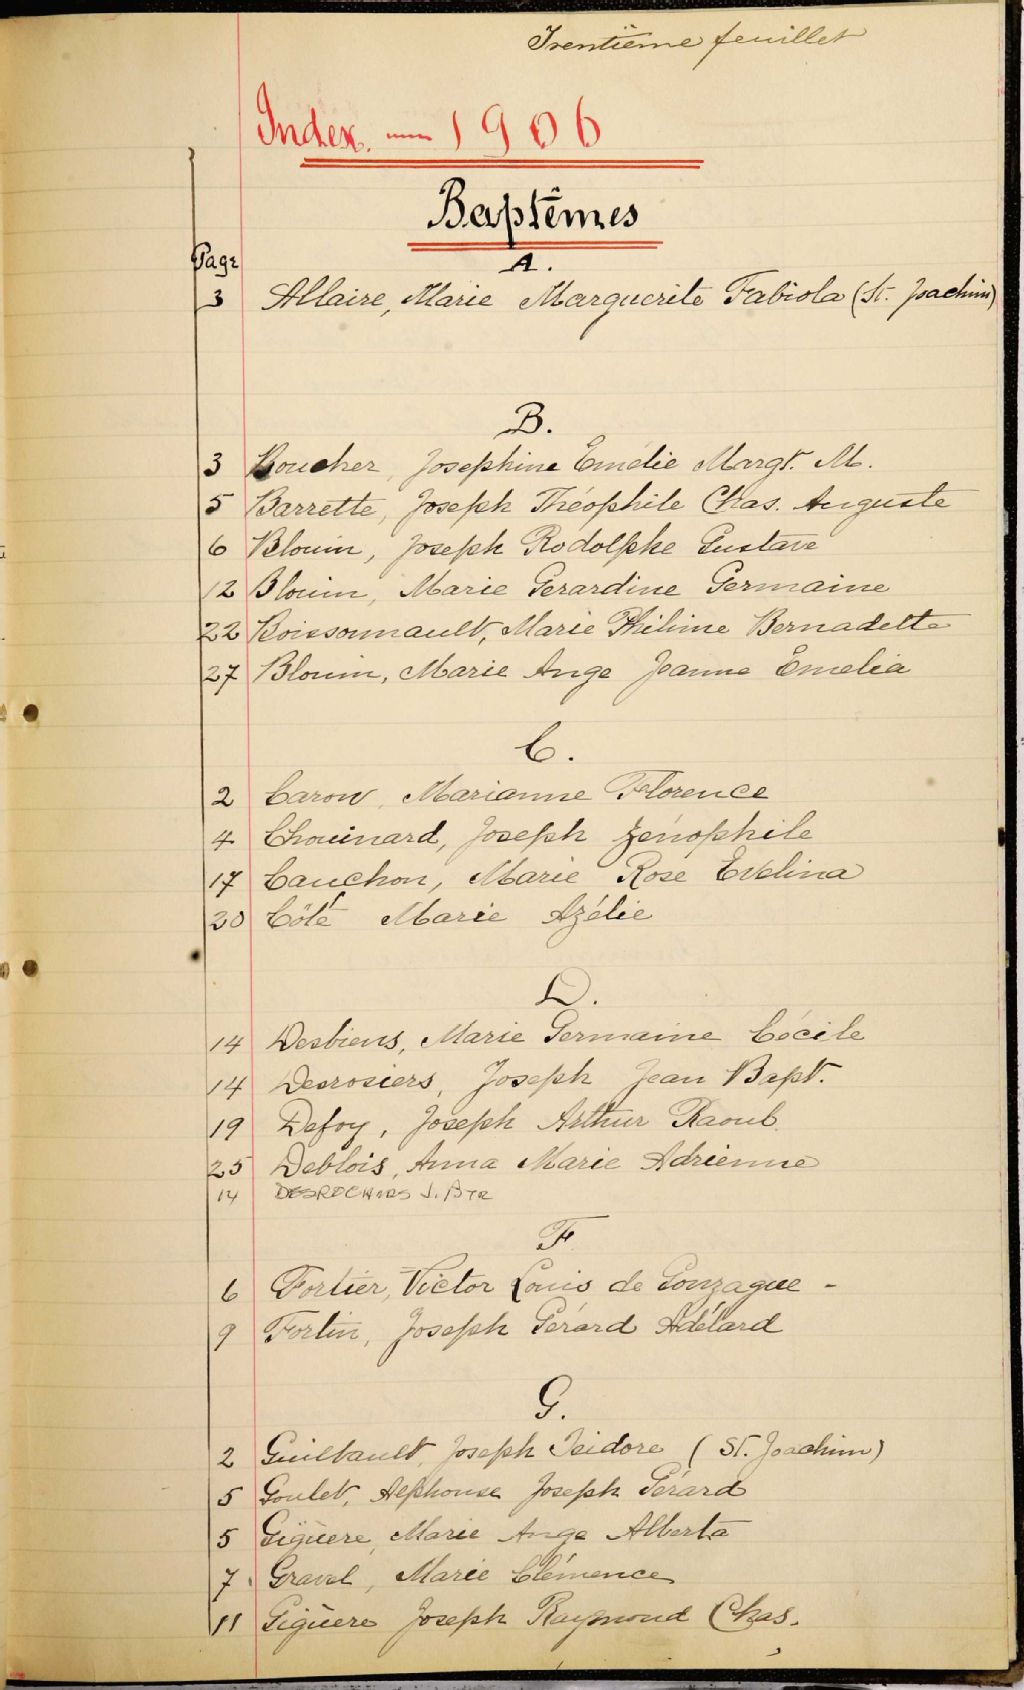 Trentième feuillet
Index. — 1906
Baptêmes
Page
A.
3 Allaire, Marie Marguerite Fabiola (St. Joachim)
B.
3 Boucher, Josephine Emélie Margt. M.
5 Barrette, Joseph Théophile Chas. Auguste
6 Blouin, Joseph Rodolphe Gustave
12 Blouin, Marie Gerardine Germaine
22 Boissonnault, Marie Bernadette
27 Blouin, Marie Ange Jeanne Emelia
C.
2 Caron, Marianne Florence
4 Chouinard, Joseph Zénophile
17 Cauchon, Marie Rose Evelina
20 Côté Marie Azélie
D.
14 Desbiens, Marie Germaine Cécile
14 Desrosiers, Joseph Jean Bapt.
19 Defoy, Joseph Arthur Raoul
25 Deblois, Anna Marie Adrienne
14 DESROCHERS J. BTE
F
6 Fortier, Victor Louis de Gonzague -
9 Fortin, Joseph Gérard Adélard
G.
2 Guilbault, Joseph Isidore (St. Joachim)
5 Goulet, Alphonse Joseph Gérard
5 Giguère, Marie Ange Alberta
7 Gravel, Marie Clémence
11 Giguère Joseph Raymond Chas.